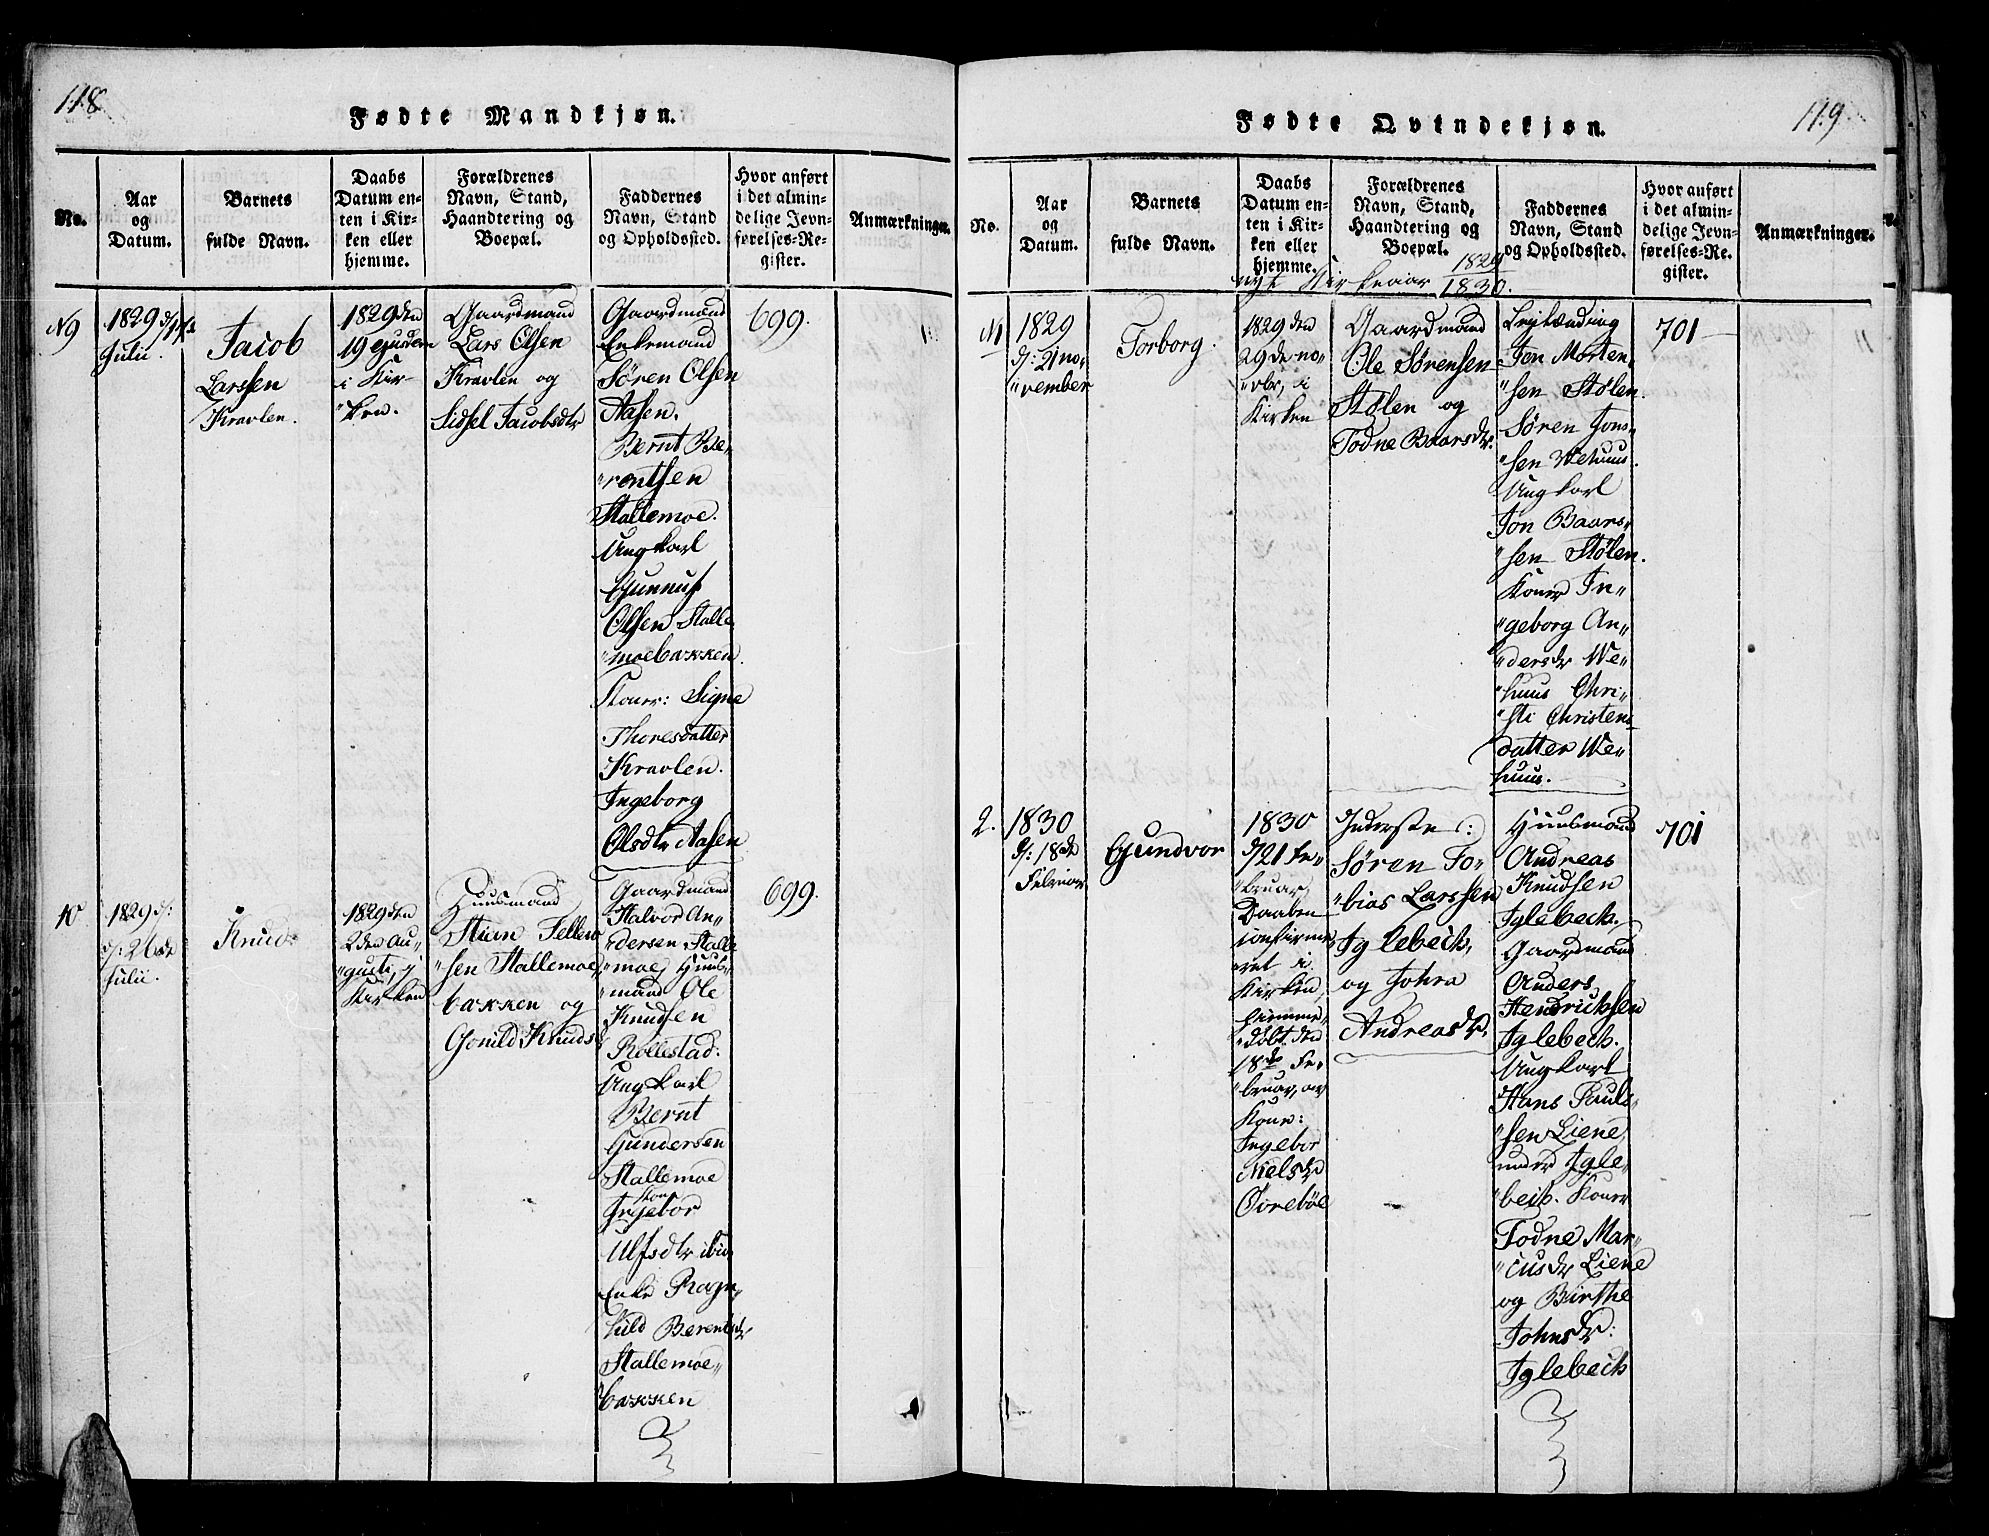 118
Fødte Mandkjøn.
No.
Aar
og
Datum.
Barnets
fulde Navn.
Daabs
Datum en-
ten i Kir-
ken eller
hjemme.
Forældrenes
Navn, Stand,
Haandtering og
Boepæl.
Faddernes
Navn, Stand
og Opholdssted.
Hvor anført
i det almin-
delige Jevn-
førelses-Re-
gister.
Anmærkninger.
N9
1829
Julii.
Jacob
Larssen
Kravlen.
1829 den
19 ejusdem
i Kir-
"ken.
Gaardmand
Lars Olsen
Kravlen og
Sidsel Jacobsdtr
Gaardmænd
Enkemand
Søren Olsen
Aasen.
Bernt Be-
"rentsen
Stallemoe.
Ungkarl
Gunnuf
Olsen Stalle
"moebakken.
Koner: Signe
Thoresdatter
Kravlen.
Ingeborg
Olsdtr Aasen
699.
10
1829 d:
26de
Julii.
Knud.
1829 den
2den Au-
"gusti, i
Kirken
Huusmand
Stian Tellev
"sen Stallemoe
bakken og
Gonild Knuds
Gaardmand
Halvor An-
"dersen Stalle
"moe, Huus-
"mand Ole
Knudsen
Røllestad.
Ungkarl
Bernt
Gundersen
Stallemoe
Kone
Ingebor
Ulfsdtr ibid
Enke Ragn-
hild Berentsdr
Stallemoe-
"bakken
699.
119
Fødte Qvindekjøn.
No.
Aar
og
Datum.
Barnets
fulde Navn.
Daabs
Datum en-
ten i Kir-
ken eller
hjemme.
Forældrenes
Navn, Stand,
Haandtering og
Boepæl.
Faddernes
Navn, Stand
og Opholdssted.
Hvor anført
i det almin-
delige Jevn-
førelses-Re-
gister.
Anmærkninger.
nyt Kirkeaar 1829
1830.
N1
1829
d: 21 no-
"vember
Torborg.
1829 den
29de no-
"vbr, i
Kirken
Gaardmand
Ole Sørensen
Stølen og
Todne Baarsdr.
Leylænding
Jon Morten-
"sen Stølen.
Søren Jons-
"sen Wehuus.
Ungkarl
Jon Baars-
"sen Stølen.
Koner In-
"geborg An-
"dersdr We-
"huus Chri-
"sti Christens
datter We-
huus.
701
2.
1830
d: 18de
Februar
Gundvor
1830
d/21 Fe-
"bruar,
Daaben
confirme-
"ret i
Kirken,
hjemme-
"døbt den
18de Fe-
"bruar, av
Kone:
Ingebor
Nielsdr
Øvrebøe
Inderste:
Søren To-
"bias Larssen
Iglebech,
og Johra
Andreasdr.
Huusmand
Andreas
Knudsen
Iglebech.
Gaardmand
Anders
Hendrichsen
Iglebech.
Ungkarl
Hans Pauls-
"sen Liene,
under Igle-
"bech. Koner
Todne Mar-
"cusdr Liene
og Birthe
Johnsdr.
Iglebech
701